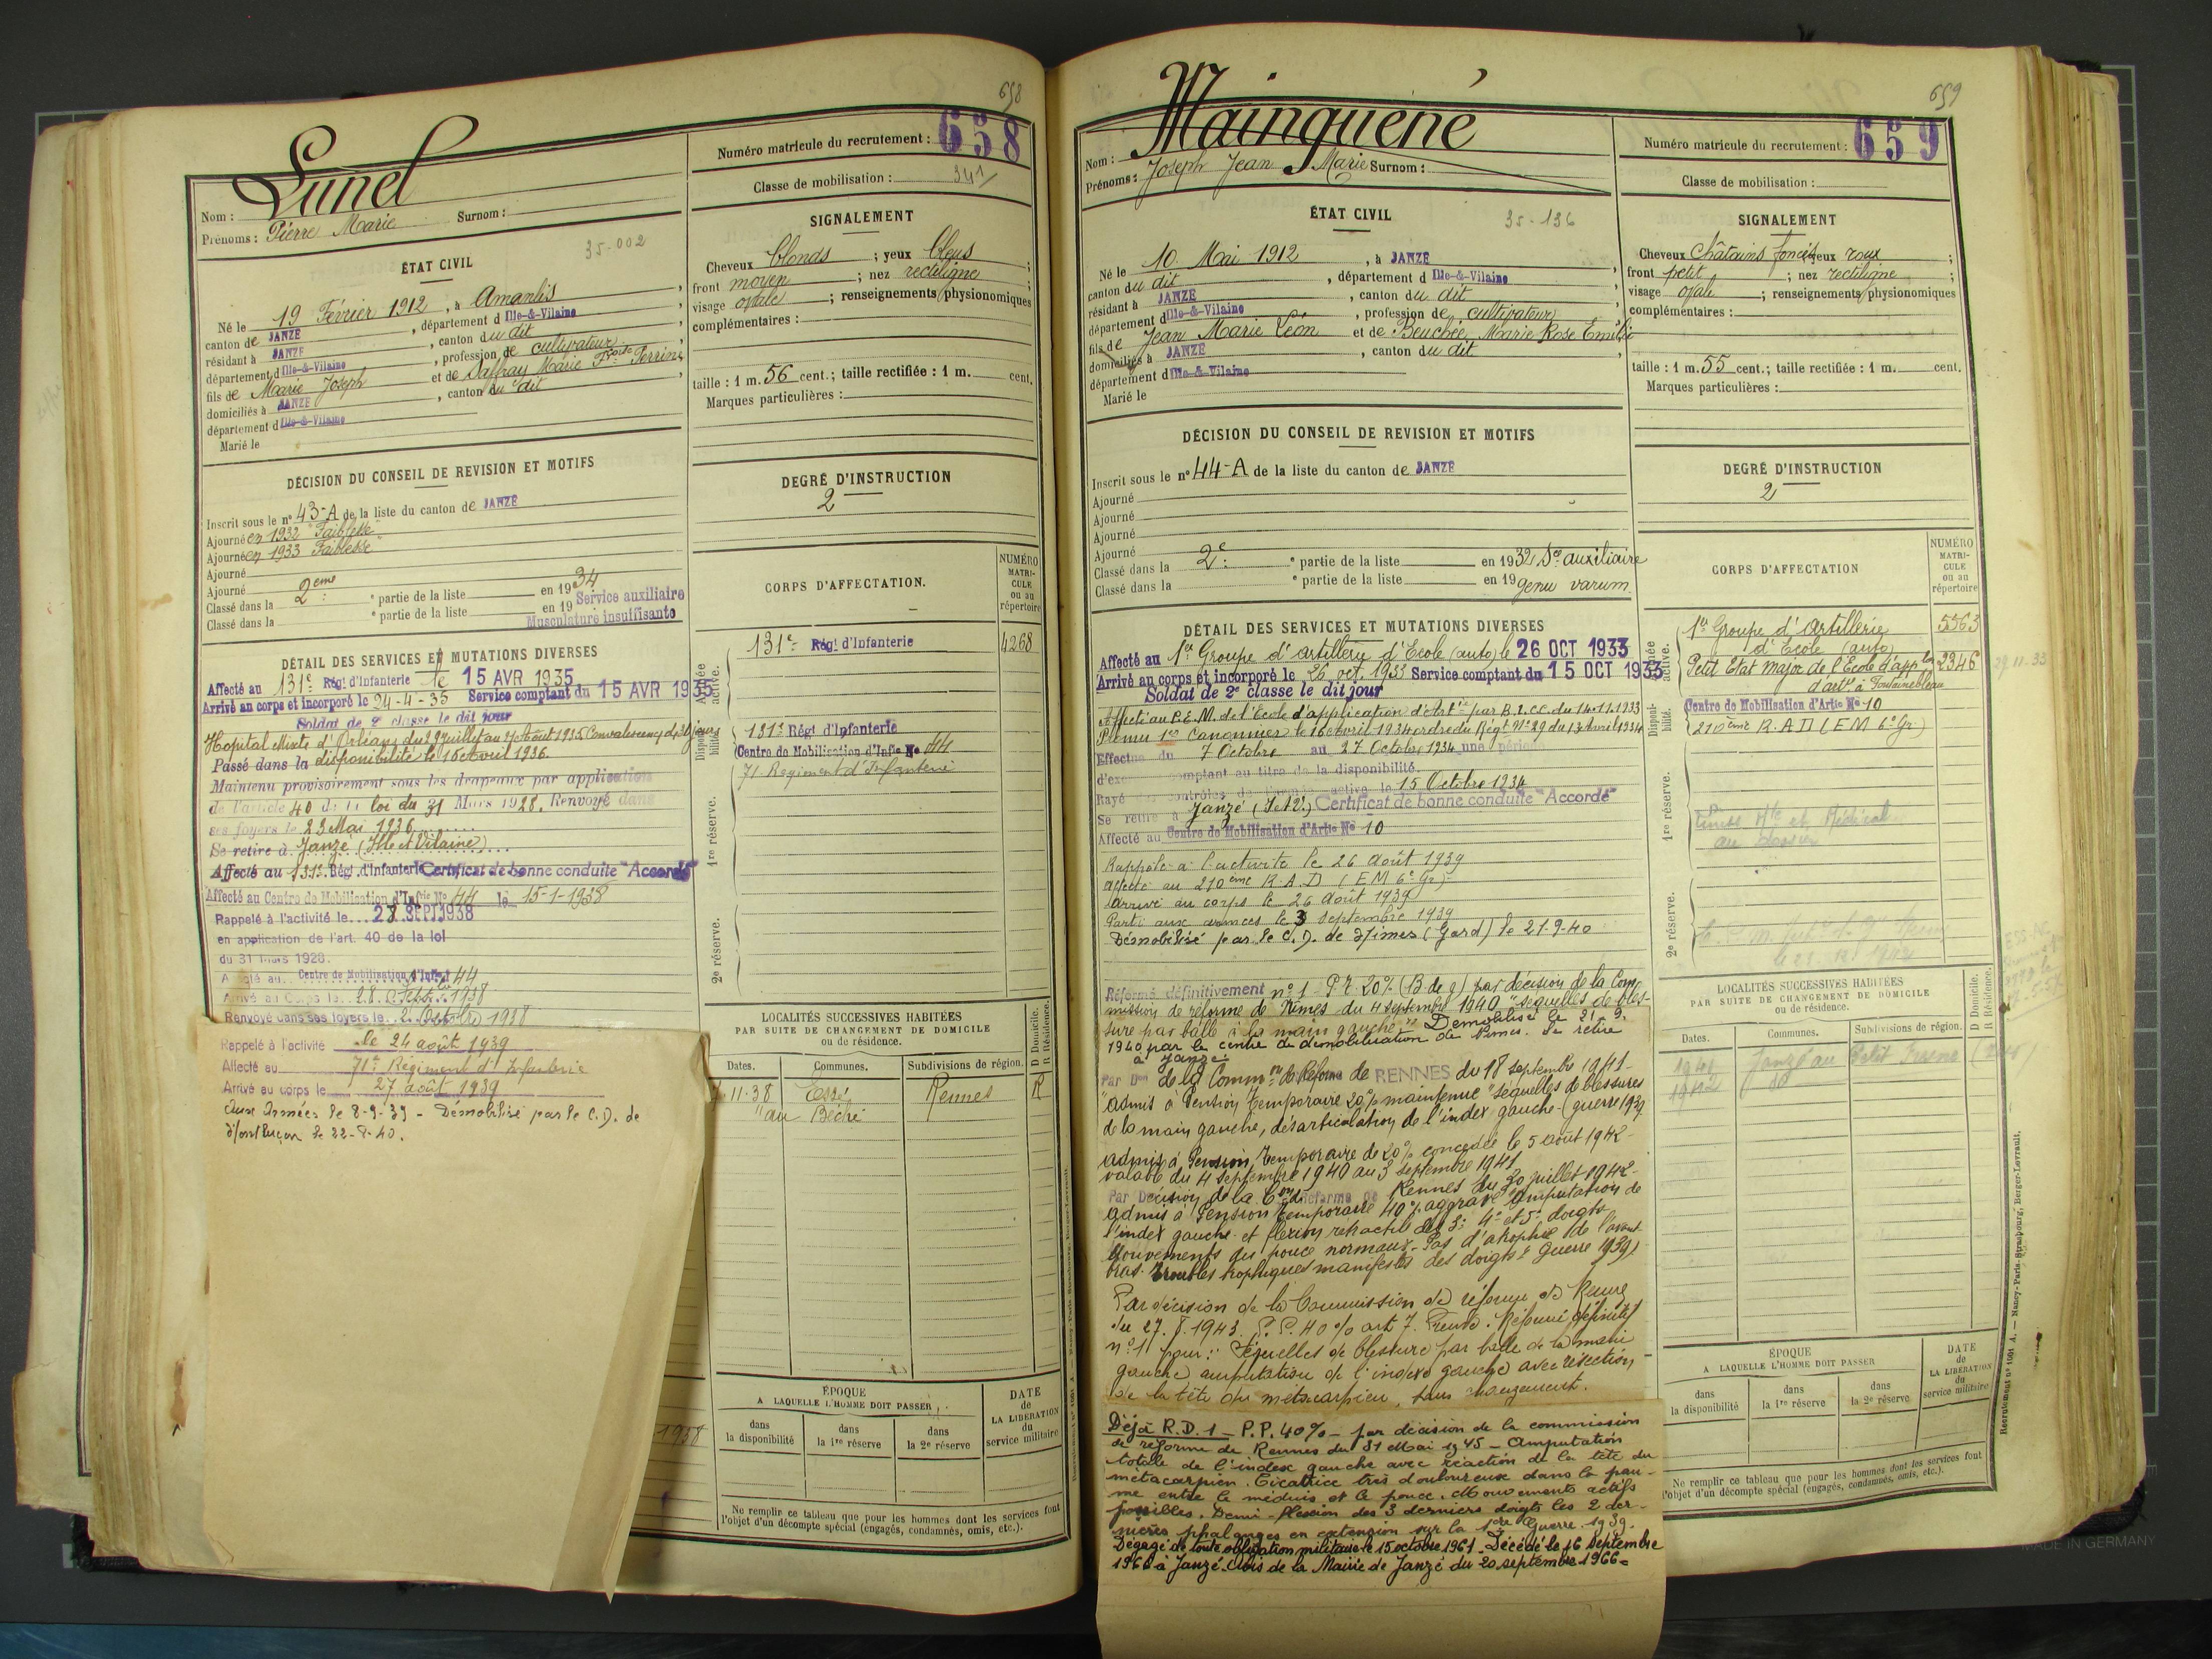 658
Lunel
Nom :
Prénoms : Pierre Marie Surnom :
Numéro matricule du recrutement : 658
Classe de mobilisation : 34/1
ÉTAT CIVIL
35-002
Né le 19 Février 1912, à Amanlis,
canton de JANZÉ, département d Ille-&-Vilaine
résidant à JANZÉ, canton du dit,
département d Ille-&-Vilaine, profession de cultivateur
fils de Marie Joseph et de Saffray Marie Perrine
domiciliés à JANZÉ, canton du dit,
département d Ille-&-Vilaine
Marié le
SIGNALEMENT
Cheveux blonds ; yeux bleus ;
front moyen ; nez rectiligne ;
visage ovale ; renseignements physionomiques
complémentaires :
taille : 1 m. 56 cent.; taille rectifiée : 1 m. cent.
Marques particulières :
DÉCISION DU CONSEIL DE REVISION ET MOTIFS
Inscrit sous le n° 43-A de la liste du canton de JANZÉ
Ajourné en 1932 "Faiblesse"
Ajourné en 1933 "Faiblesse"
Ajourné
Ajourné
Classé dans la 2ème e partie de la liste en 1934
Classé dans la e partie de la liste en 19 Service auxiliaire
Musculature insuffisante
DEGRÉ D'INSTRUCTION
2
CORPS D'AFFECTATION.
NUMÉRO MATRICULE ou au répertoire
Armée active.
131e Rég! d'Infanterie 4268
Disponibilité.
131e Régt d'Infanterie
Centre de Mobilisation d'Infie N° 44
71 Régiment d'Infanterie
1re réserve.
2e réserve.
DÉTAIL DES SERVICES ET MUTATIONS DIVERSES
Affecté au 131e Rég! d'Infanterie le 15 AVR 1935
Arrivé au corps et incorporé le 24-4-35 Service comptant du 15 AVR 1935
Soldat de 2e classe le dit jour
Hopital Mixte d'Orléans du 29 Juillet au 7 Août 1935 Convalescence de 30 jours
Passé dans la disponibilité le 15 Avril 1936.
Maintenu provisoirement sous les drapeaux par application
de l'article 40 de la loi du 31 Mars 1928. Renvoyé dans
ses foyers le 23 Mai 1936
Se retire à Janzé (Ille et Vilaine)
Affecté au 131e Régt d'Infanterie Certificat de bonne conduite "Accordé"
Affecté au Centre de Mobilisation d'Infrie N° 44 le 15-1-1938
Rappelé à l'activité le 28 SEPT 1938
en application de l'art. 40 de la loi
du 31 Mars 1928.
Affecté au Centre de Mobilisation d'Infie 44
Arrivé au Corps le 28 Septbre 1938
Renvoyé dans ses foyers le 2 Octobre 1938
Rappelé à l'activité le 24 août 1939
Affecté au 71e Régiment d'Infanterie
Arrivé au corps le 27 août 1939
Aux Armées le 8-9-39 - Démobilisé par le C.D. de
Montluçon le 22-8-40.
1938
LOCALITÉS SUCCESSIVES HABITÉES
PAR SUITE DE CHANGEMENT DE DOMICILE
ou de résidence.
D Domicile. R Résidence.
Dates. Communes. Subdivisions de région.
11.38 Essé Rennes R
"au Béché
ÉPOQUE
A LAQUELLE L'HOMME DOIT PASSER
dans la disponibilité
dans la 1re réserve
dans la 2e réserve
DATE de LA LIBÉRATION du service militaire
Ne remplir ce tableau que pour les hommes dont les services font
l'objet d'un décompte spécial (engagés, condamnés, omis, etc.).
659
Mainguené
Nom :
Prénoms : Joseph Jean Marie Surnom :
Numéro matricule du recrutement : 659
Classe de mobilisation :
ÉTAT CIVIL
35-136
Né le 10 Mai 1912, à JANZÉ,
canton du dit, département d Ille-&-Vilaine
résidant à JANZÉ, canton du dit,
département d Ille-&-Vilaine, profession de cultivateur
fils de Jean Marie Léon et de Beuchée Marie Rose Emilie
domiciliés à JANZÉ, canton du dit,
département d Ille-&-Vilaine
Marié le
SIGNALEMENT
Cheveux Châtains foncés yeux roux ;
front petit ; nez rectiligne ;
visage ovale ; renseignements physionomiques
complémentaires :
taille : 1 m. 55 cent.; taille rectifiée : 1 m. cent.
Marques particulières :
DÉCISION DU CONSEIL DE REVISION ET MOTIFS
Inscrit sous le n° 44-A de la liste du canton de JANZÉ
Ajourné
Ajourné
Ajourné
Ajourné
Classé dans la 2e e partie de la liste en 1932 Sce auxiliaire
Classé dans la e partie de la liste en 19 genu varum
DEGRÉ D'INSTRUCTION
2
CORPS D'AFFECTATION
NUMÉRO MATRICULE ou au répertoire
Armée active.
1er Groupe d'Artillerie 5563
d'Ecole (auto)
Petit Etat Major de l'Ecole d'appon 2346 29.11.33
d'artie à Fontainebleau
Disponibilité.
Centre de Mobilisation d'Artie N° 10
210ème R.A.D (EM 6e Gr)
1re réserve.
2e réserve.
DÉTAIL DES SERVICES ET MUTATIONS DIVERSES
Affecté au 1er Groupe d'Artillerie d'Ecole (auto) le 26 OCT 1933
Arrivé au corps et incorporé le 26 oct. 1933 Service comptant du 15 OCT 1933
Soldat de 2e classe le dit jour
Affecté au P.E.M. de l'Ecole d'application d'Artie par B.I.CC. du 14.11.1933
Promu 1er Canonnier le 16 avril 1934 ordre du Régt N° 29 du 13 Avril 1934
Effectue du 7 Octobre au 27 Octobre 1934 une période
d'exercice comptant au titre de la disponibilité.
Rayé des contrôles de l'armée active le 15 Octobre 1934
Se retire à Janzé (I et V.) Certificat de bonne conduite "Accordé"
Affecté au Centre de Mobilisation d'Artie N° 10
Rappelé à l'activité le 26 Août 1939
affecté au 210ème R.A.D (EM 6e Gr)
Arrivé au corps le 26 Août 1939
Parti aux armées le 3 septembre 1939
Démobilisé par le C.D. de Nîmes (Gard) le 21-9-40
Réformé définitivement n° 1 Pr 20% (B de g) par décision de la Com-
mission de réforme de Nîmes du 4 septembre 1940 "séquelles de bles-
sure par balle à la main gauche". Démobilisé le 21.9.
1940 par le centre de démobilisation de Nîmes. Se retire
à Janzé.
Par Don de la Common de Réforme de RENNES du 18 septembre 1941
"admis à Pension temporaire 20% maintenue "séquelles de blessures
de la main gauche, désarticulation de l'index gauche (guerre 1939
admis à Pension temporaire de 20% concédée le 5 août 1942
valable du 4 septembre 1940 au 3 septembre 1941
Par Décision de la Con de Réforme de Rennes du 30 juillet 1942
admis à Pension temporaire 40% aggravé "amputation de
l'index gauche et flexion rétractile des 3e 4e et 5e doigts
Mouvements du pouce normaux. Pas d'atrophie de l'avant-
bras. Troubles trophiques manifestes des doigts (guerre 1939)
Par décision de la Commission de réforme de Rennes
du 27.8.1943 P.P. 40% art 7. Réformé définitif
n° 1 pour : Séquelles de blessure par balle de la main
gauche amputation de l'index gauche avec résection
de la tête du métacarpien, sans changement.
Déjà R.D.1 - P.P. 40% - par décision de la commission
de réforme de Rennes du 31 Mai 1945 - Amputation
totale de l'index gauche avec réaction de la tête du
métacarpien. Cicatrice très douloureuse dans la pau-
me entre le médius et le pouce. Mouvements actifs
possibles. Demi-flexion des 3 derniers doigts les 2 der-
nières phalanges en extension sur la 1ère Guerre 1939.
Dégagé de toute obligation militaire le 15 octobre 1961. Décédé le 16 Septembre
1966 à Janzé. Avis de la Mairie de Janzé du 20 septembre 1966=
LOCALITÉS SUCCESSIVES HABITÉES
PAR SUITE DE CHANGEMENT DE DOMICILE
ou de résidence.
D Domicile. R Résidence.
Dates. Communes. Subdivisions de région.
1941 Janzé au Petit
1942
ÉPOQUE
A LAQUELLE L'HOMME DOIT PASSER
dans la disponibilité
dans la 1re réserve
dans la 2e réserve
DATE de LA LIBÉRATION du service militaire
Ne remplir ce tableau que pour les hommes dont les services font
l'objet d'un décompte spécial (engagés, condamnés, omis, etc.).
Recrutement n° 1001 A. — Nancy-Paris-Strasbourg, Berger-Levrault.
MADE IN GERMANY